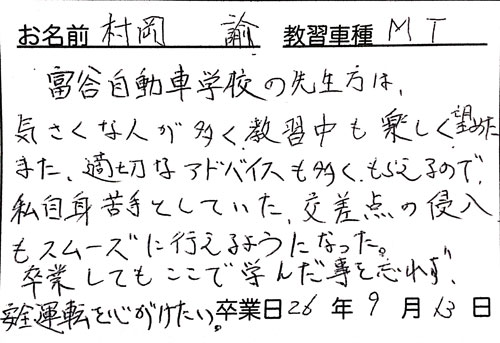 お名前 村岡 諭 教習車種 MT
富谷自動車学校の先生方は、
気さくな人が多く、教習中も楽しく望めた
また、適切なアドバイスも多くもらえるので、
私自身苦手としていた、交差点の侵入
もスムーズに行えるようになった。
卒業してもここで学んだ事を忘れず、
安全運転を心がけたい。卒業日26年9月13日